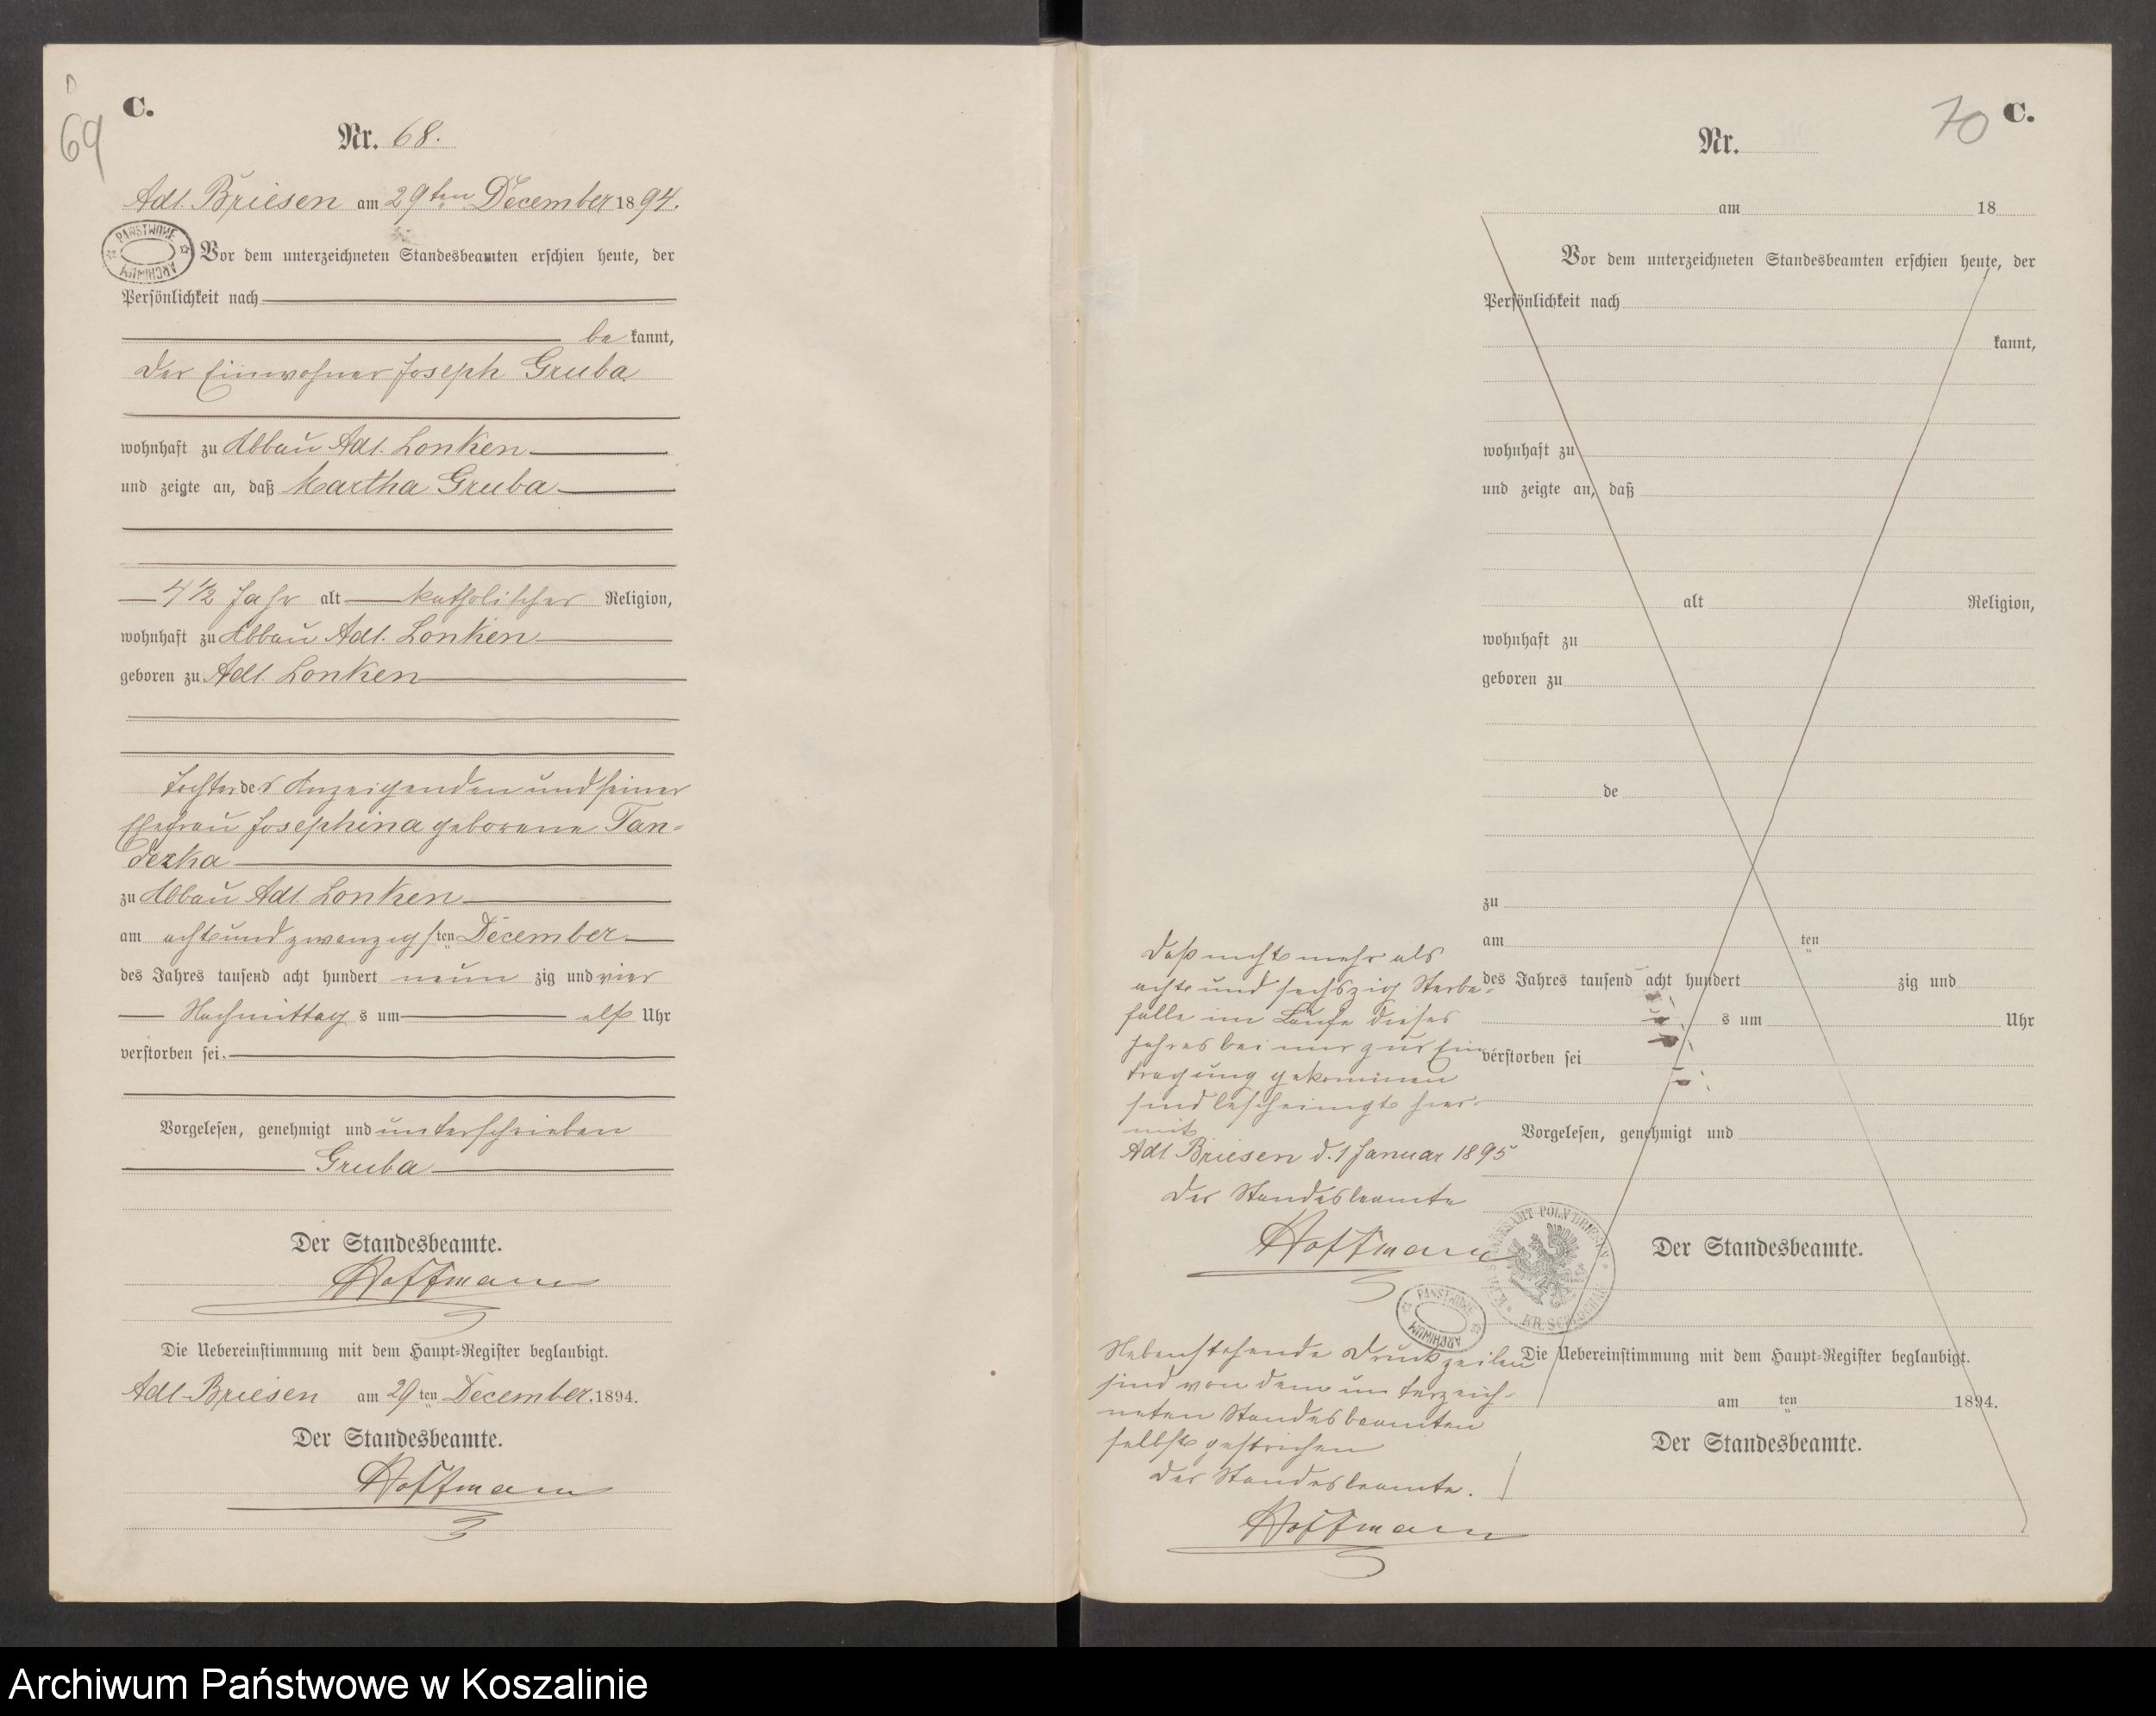 D
69
C.
Nr. 68.
Adl. Briesen am 29ten December 1894.
PAŃSTWOWE ARCHIWUM
Vor dem unterzeichneten Standesbeamten erschien heute, der
Persönlichkeit nach
be kannt,
der Einwohner Joseph Gruba
wohnhaft zu Abbau Adl. Lonken
und zeigte an, daß Martha Gruba
4 1/2 Jahr alt katholischer Religion,
wohnhaft zu Abbau Adl. Lonken
geboren zu Adl. Lonken
Tochter des Anzeigenden und seiner
Ehefrau Josephina geborene Tan-
dezka
zu Abbau Adl. Lonken
am acht und zwanzigsten December
des Jahres tausend acht hundert neun zig und vier
Nachmittag s um elf Uhr
verstorben sei.
Vorgelesen, genehmigt und unterschrieben
Gruba
Der Standesbeamte.
Hoffmann
Die Uebereinstimmung mit dem Haupt-Register beglaubigt.
Adl. Briesen am 29 ten December 1894.
Der Standesbeamte.
Hoffmann
70
C.
Nr.
am 18
Vor dem unterzeichneten Standesbeamten erschien heute, der
Persönlichkeit nach
kannt,
wohnhaft zu
und zeigte an, daß
alt Religion,
wohnhaft zu
geboren zu
de
zu
am ten
des Jahres tausend acht hundert zig und
s um Uhr
verstorben sei
Vorgelesen, genehmigt und
Der Standesbeamte.
Die Uebereinstimmung mit dem Haupt-Register beglaubigt.
am ten 1894.
Der Standesbeamte.
Daß nicht mehr als
acht und sechszig Sterbe-
fälle im Laufe dieses
Jahres bei mir zur Ein-
tragung gekommen
sind bescheinigt hier-
mit
Adl. Briesen d. 1 Januar 1895
Der Standesbeamte
Hoffmann
STANDESAMT POLN BRIESEN
KR. SCHLOCHAU
PAŃSTWOWE ARCHIWUM
Nebenstehende Druckzeilen
sind von dem unterzeich-
neten Standesbeamten
selbst gestrichen
Der Standesbeamte.
Hoffmann
Archiwum Państwowe w Koszalinie